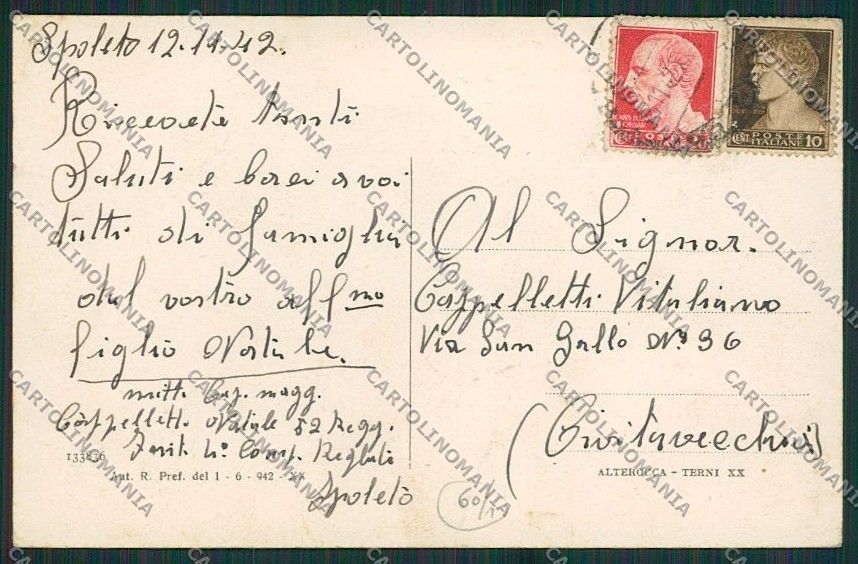 Spoleto 12.11.42.
Ricevete tanti
Saluti e baci a voi
tutti di famiglia
dal vostro aff mo
figlio Natale.
mitt. Cap. magg.
Cappelletti Natale 52 Regg.
Fant. 4ª Comp. Reglute
Spoleto
133436
Aut. R. Pref. del 1 - 6 - 942 - XX
Al Signor.
Cappelletti Vitaliano
Via San Gallo Nº 36
(Civitavecchia)
ALTEROCCA - TERNI XX
60/1
CENT.
POSTE
ITALIANE
10
CARTOLINOMANIA